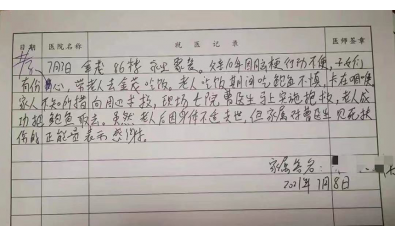 日期 医院名称 就医记录 医师签章
7月7日 金茂86楼 家庭聚餐。父亲10年因脑梗行动不便,子女们
有份心,带老人去金茂吃饭。老人吃饭期间吃鲍鱼不慎,卡在咽喉
家人不知所措向周边求救,现场七院曹医生马上实施抢救,老人成
功把鲍鱼取出。虽然老人后因身体不适去世,但家属对曹医生见死扶
伤的正能量表示感谢。
家属签名:
2021年7月8日